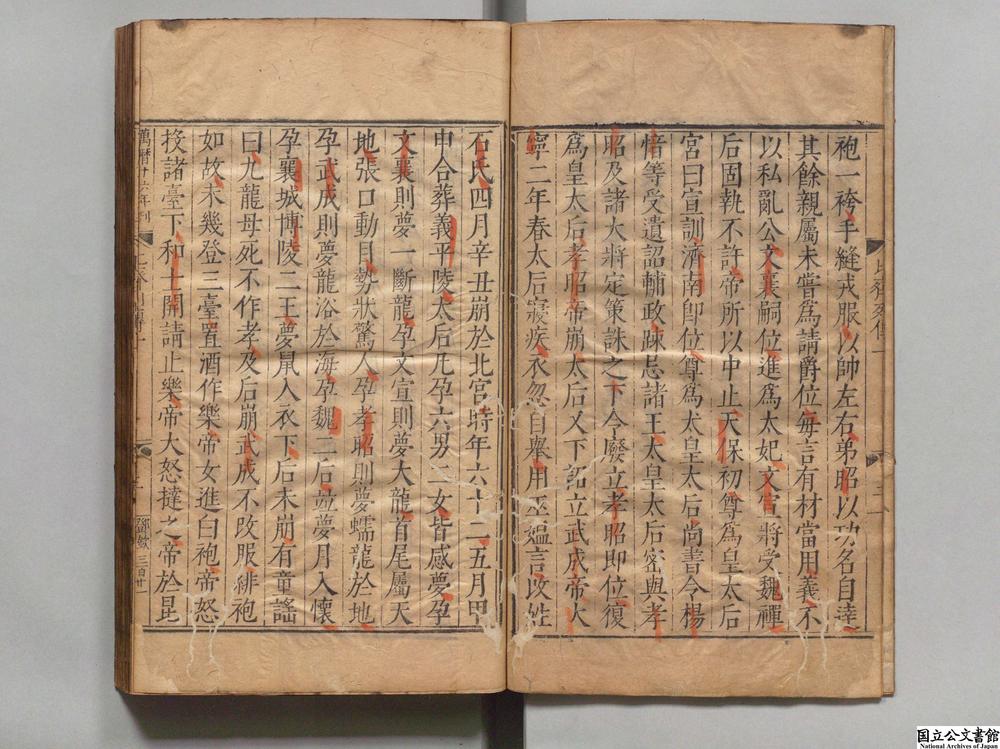 袍一袴手縫戎服以帥左右弟昭以功名自達
其餘親屬未嘗爲請爵位每言有材當用義不
以私亂公文襄嗣位進爲太妃文宣將受魏禪
后固執不許帝所以中止天保初尊爲皇太后
宮曰宣訓濟南卽位尊爲太皇太后尚書令楊
愔等受遺詔輔政疎忌諸王太皇太后密與孝
昭及諸大將定策誅之下令廢立孝昭即位復
爲皇太后孝昭帝崩太后又下詔立武成帝大
寧二年春太后寢疾衣忽自舉用巫媼言改姓
石氏四月辛丑崩於北宮時年六十二五月甲
申合葬義平陵太后凡孕六男二女皆感夢孕
文襄則夢一斷龍孕文宣則夢大龍首尾屬天
地張口動目勢狀驚人孕孝昭則夢蠕龍於地
孕武成則夢龍浴於海孕魏二后並夢月入懷
孕襄城博陵二王夢鼠入衣下后未崩有童謠
曰九龍母死不作孝及后崩武成不改服緋袍
如故未幾登三臺置酒作樂帝女進白袍帝怒
投諸臺下和士開請止樂帝大怒撻之帝於昆
萬曆十六年刊
三百廿
国立公文書館
National Archives of Japan